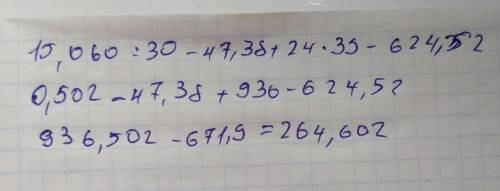 15,060:30-47,38+24·39-624,52
0,502-47,38+936-624,52
936,502-671,9=264,602